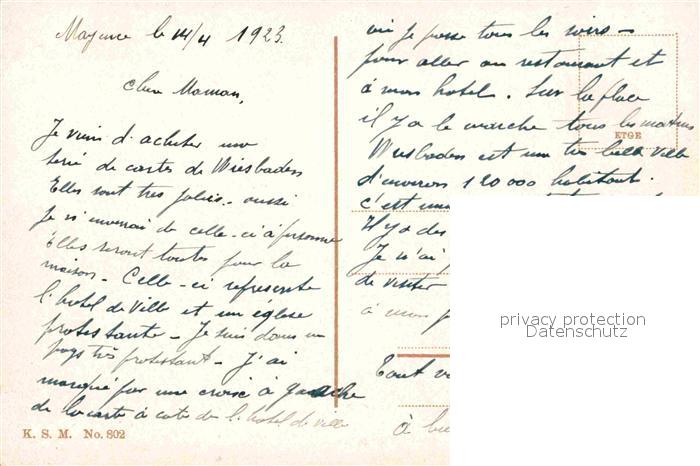 Mayence le 14/4 1923.
Chère Maman,
Je viens d'acheter une
série de cartes de Wiesbaden
Elles sont très jolies - aussi
je n'enverrai de celle-ci à personne
Elles seront toutes pour la
maison - Celle-ci représente
l'hotel de Ville et une église
protestante - Je suis dans un
pays très protestant - J'ai
marqué par une croix à gauche
de la carte à coté de l'hotel de ville
K. S. M. No. 802
où je passe tous les soirs -
pour aller au restaurant et
à mon hotel. Sur la place
il y a le marché tous les matins
Wiesbaden est une très belle ville
d'environ 120 000 habitants.
c'est une
Il y a des
Je n'ai
de visiter
à mon
Tout
à
ETGE
privacy protection
Datenschutz